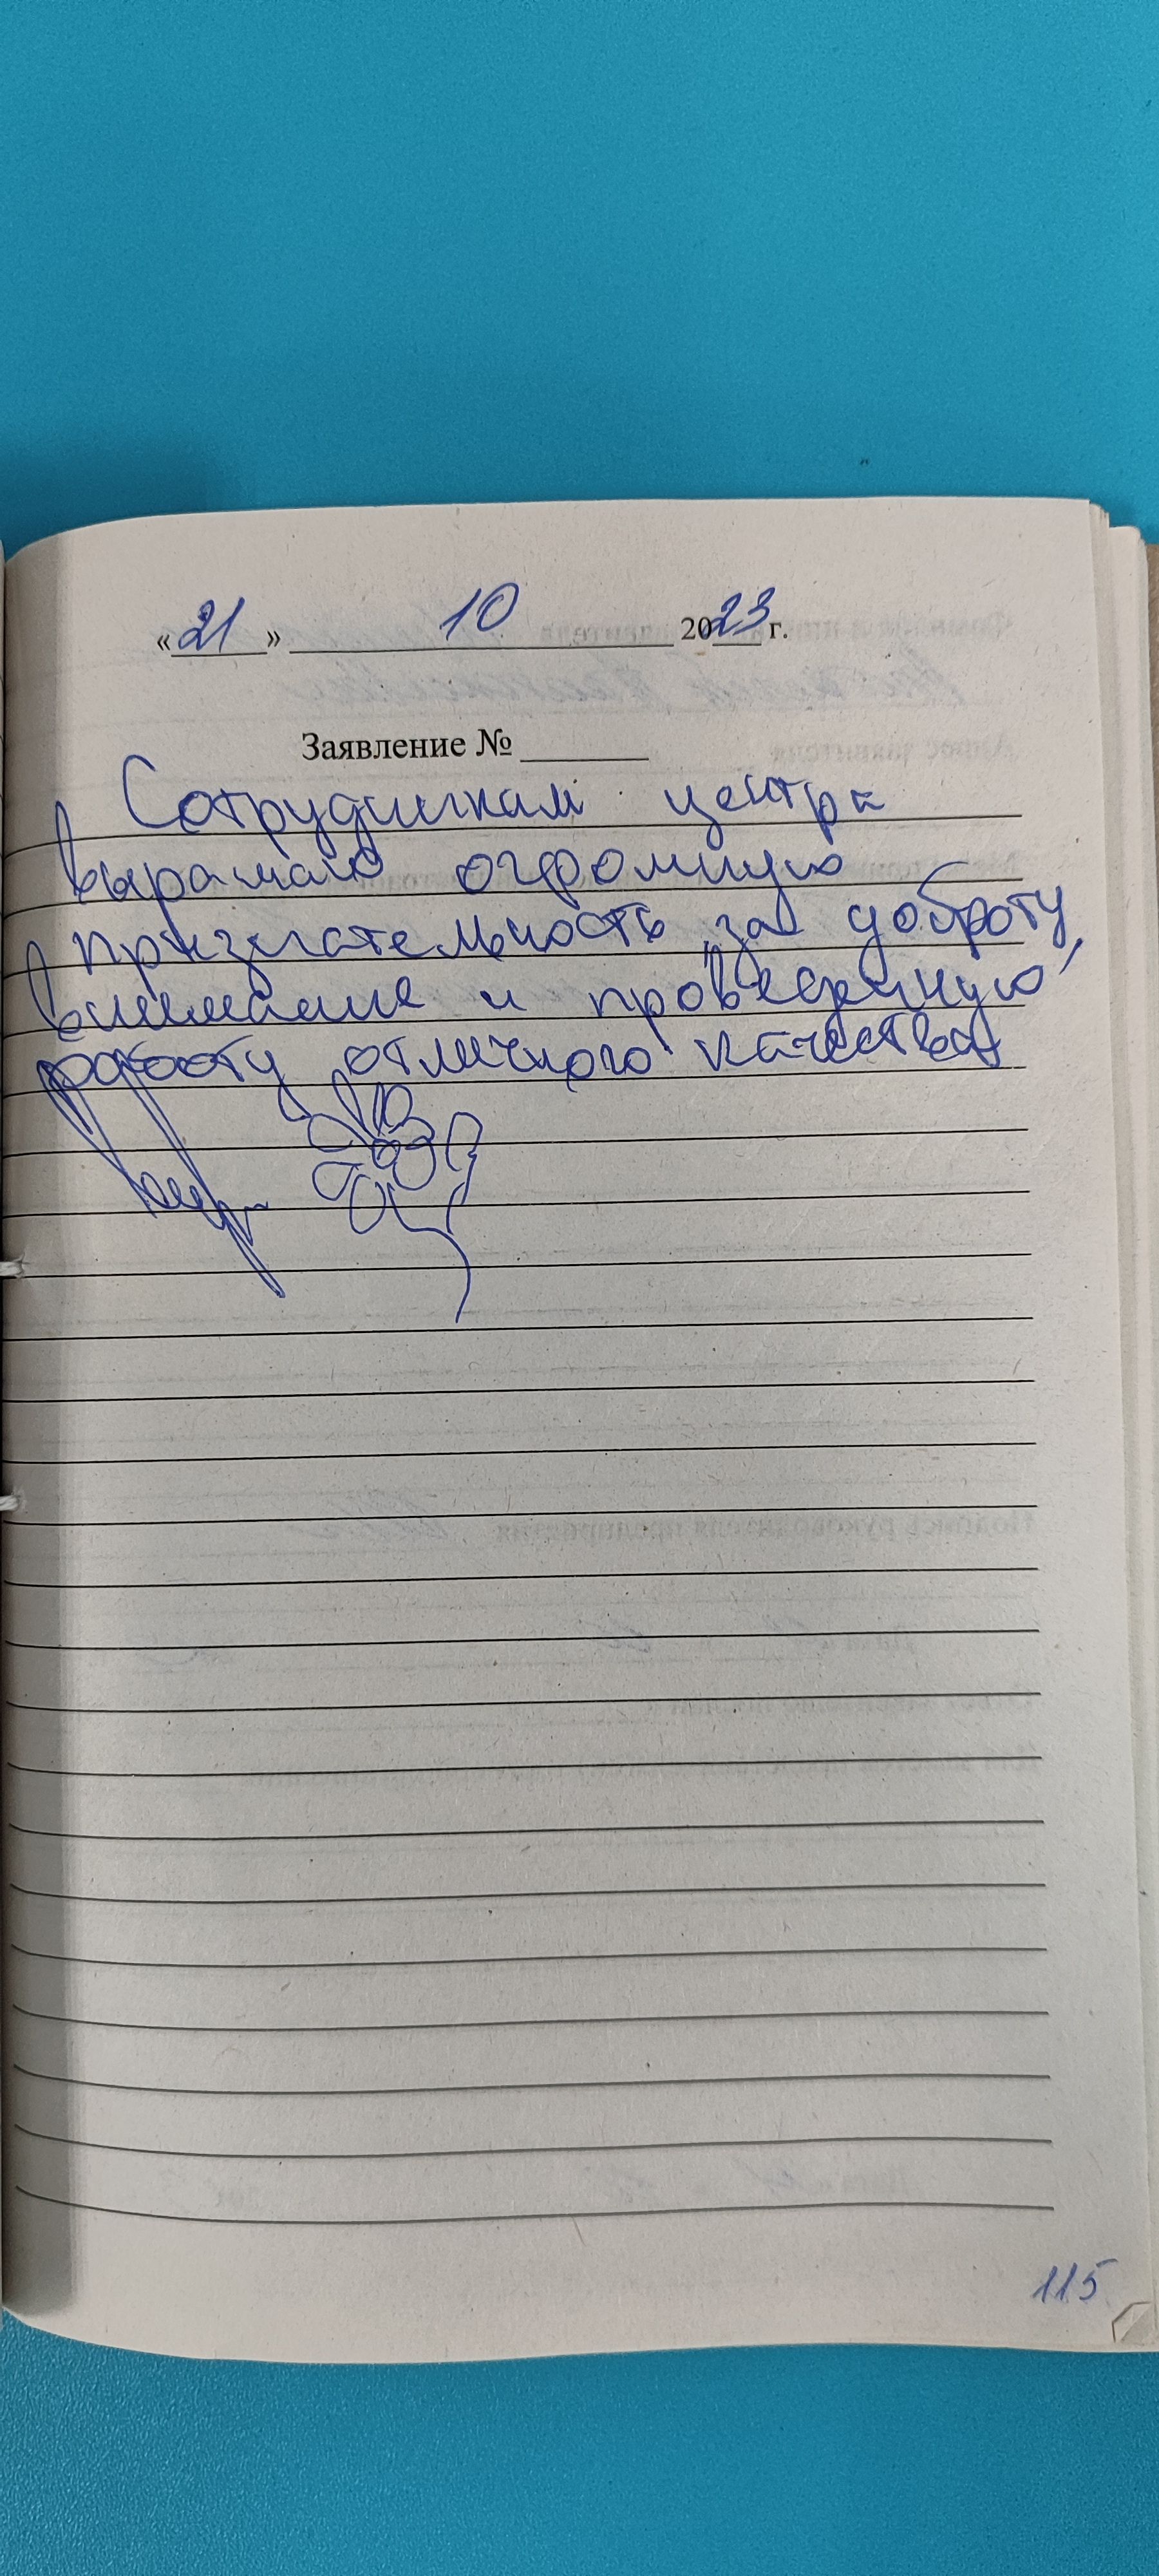 «21» 10 2023 г.
Заявление № ______
Сотрудникам центра
выражаю огромную
признательность за доброту,
внимание и проведенную
работу отличного качества
115